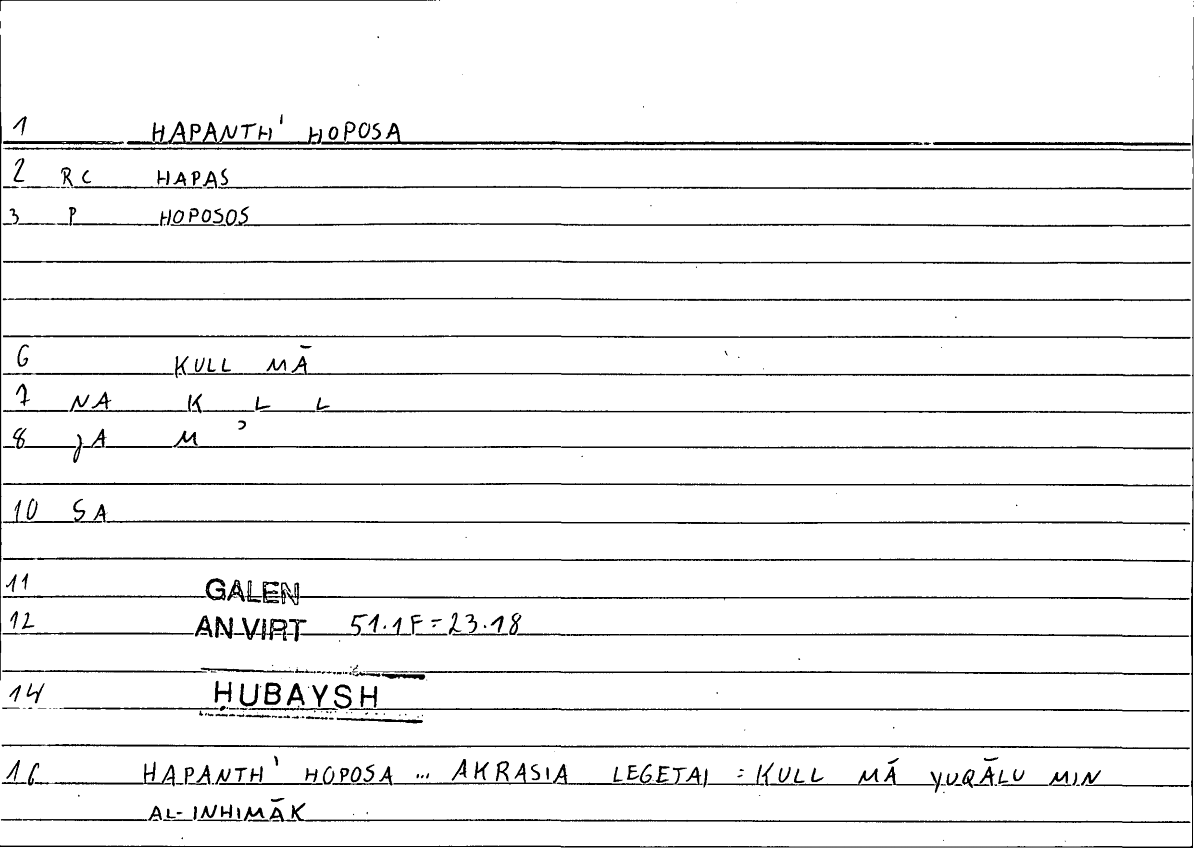 1 HAPANTH' HOPOSA
2 RC HAPAS
3 P HOPOSOS
6 KULL MĀ
7 NA K L L
8 JA M ʾ
10 SA
11 GALEN
12 AN.VIRT 51.1F=23.18
14 ḤUBAYSH
16 HAPANTH' HOPOSA ... AKRASIA LEGETAI = KULL MĀ YUQĀLU MIN
AL-INHIMĀK